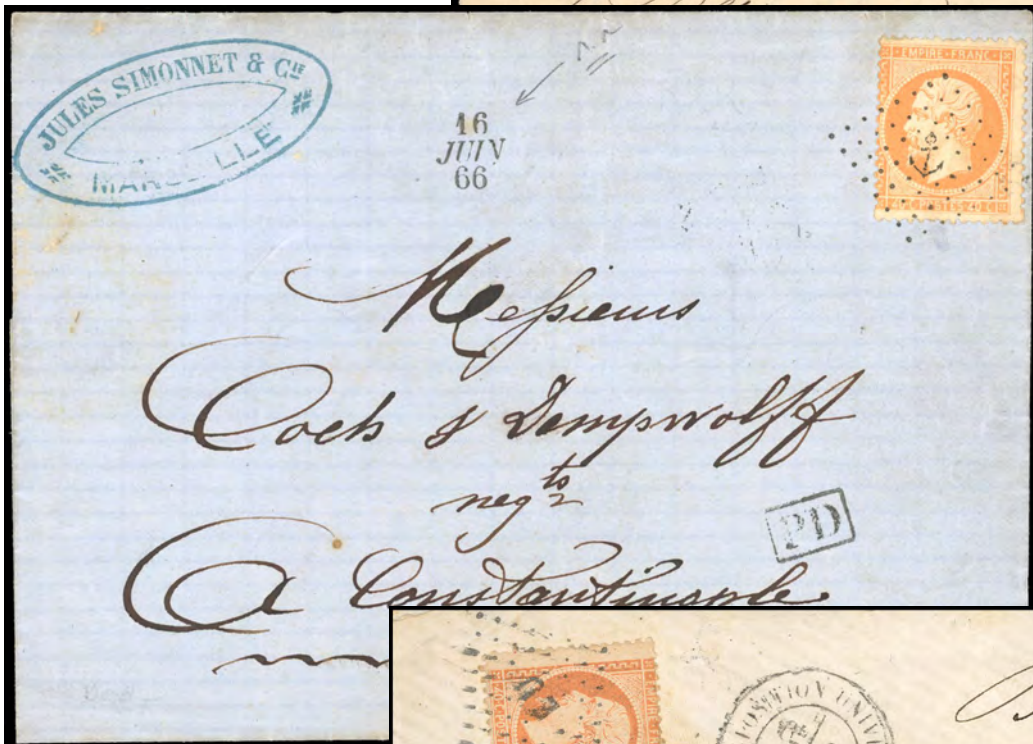 JULES SIMONNET & CIE
MARSEILLE
16
JUIN
66
EMPIRE·FRANC·
40 C POSTES 40 C
Messieurs
& Dempwolff
negts
PD
A Constantinople